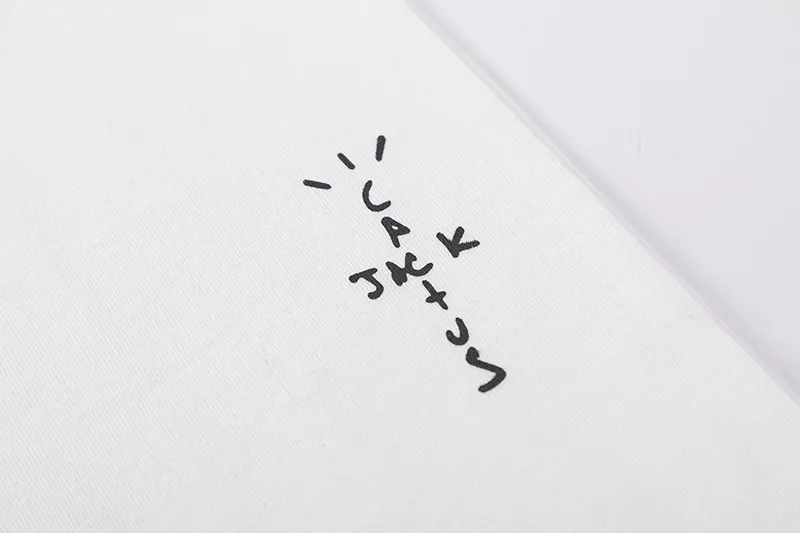 CACTUS
JACK